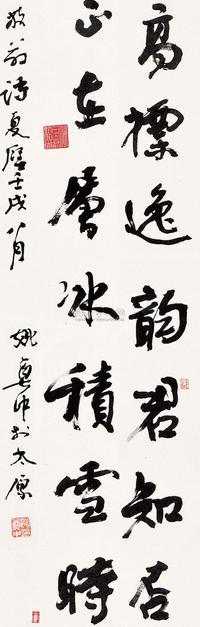 高標逸韵君知否
正在層冰積雪時
放翁詩夏曆壬戌八月
姚奠中於太原